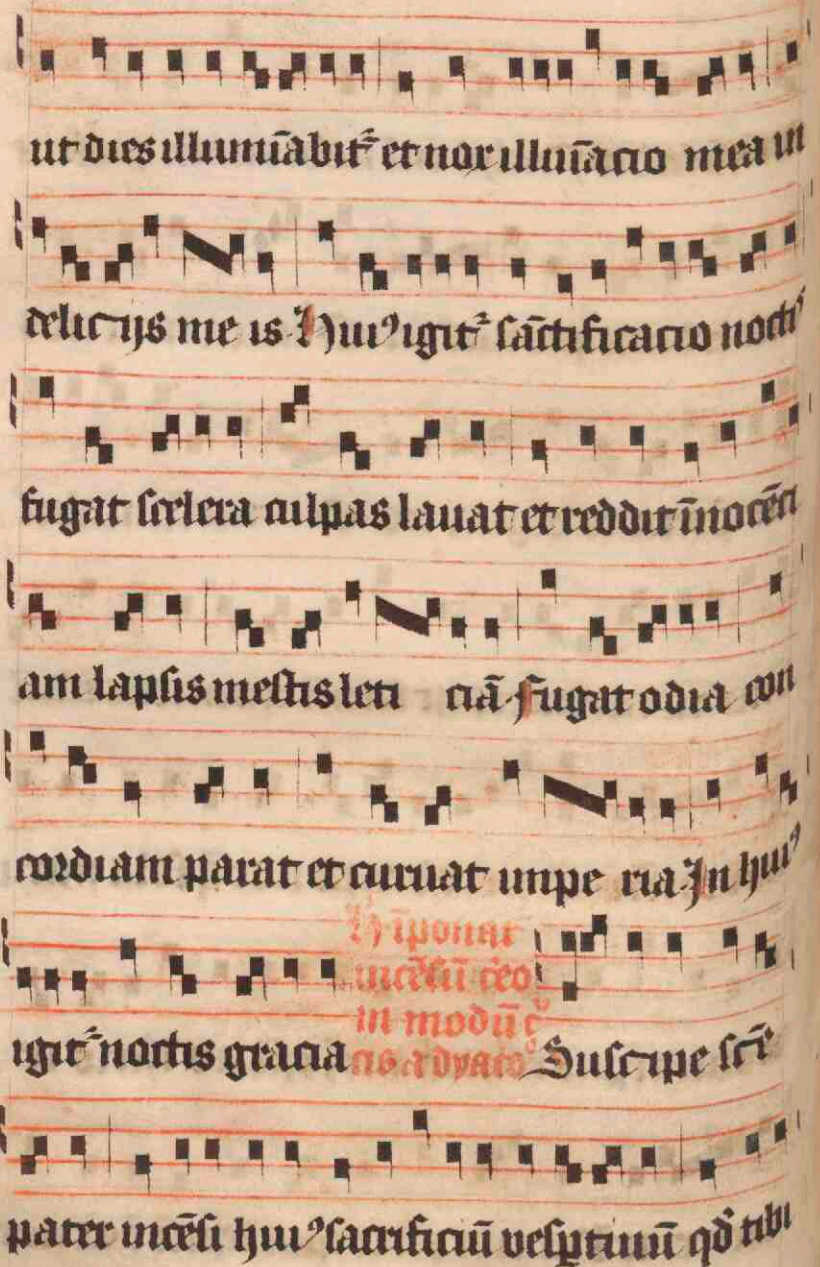 ut dies illumīabit᷑ et nox illuīacio mea in
delicijs me is Huiꝰ igit᷑ sāctificacio noctiꝰ
fugat scelera culpas lauat et reddit īnocēci
am lapsis mestis leti ciā fugat odia con
cordiam parat et curuat impe ria In huiꝰ
H īponat
incēsū ceo
in modū
igit᷑ noctis gracia Suscipe scē
pater incēsi huiꝰ sacrificiū vesꝑtinū qđ tibi